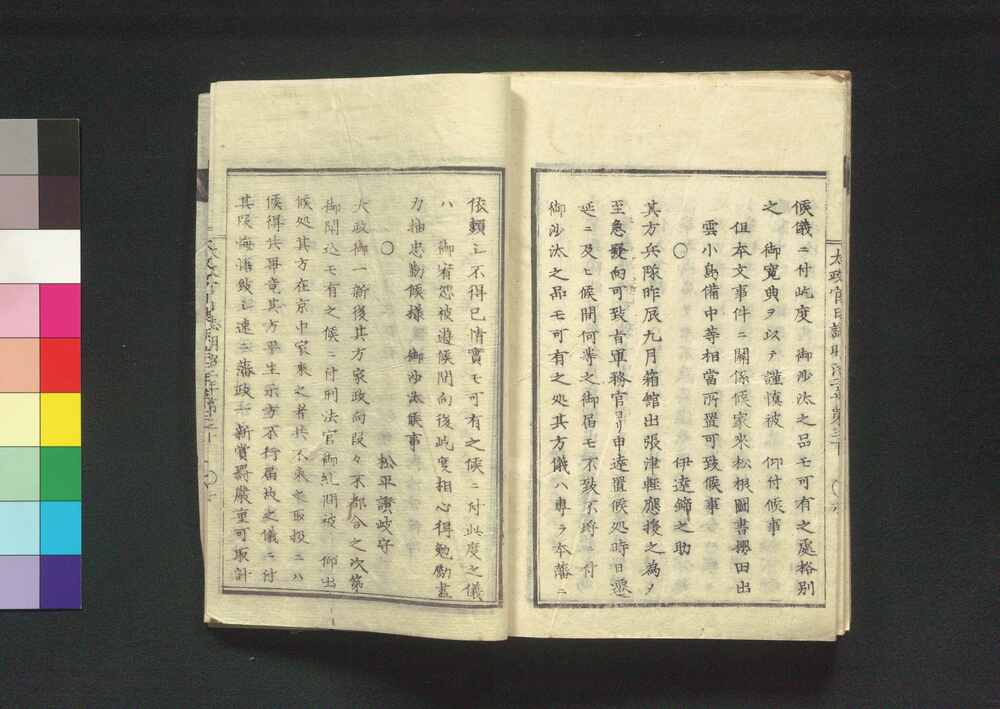 候儀ニ付屹度　御沙汰之品モ可有之処格別
之　御寛典ヲ以テ謹慎被　仰付候事
但本文事件ニ関係候家来松根図書桜田出
雲小島備中等相当所置可致候事
○　伊達鐏之助
其方兵隊昨辰九月箱館出張津軽応援之為ヲ
至急発向可致旨軍務官ヨリ申達置候処時日遷
延ニ及ヒ候間何等之御届モ不致不埒ニ付
御沙汰之品モ可有之処其方儀ハ専ラ本藩ニ
依頼シ不得已情実モ可有之候ニ付此度之儀
ハ　御宥恕被遊候間向後屹度相心得勉励尽
力抽忠勤候様　御沙汰候事
○　松平讃岐守
大政御一新後其方家政向段々不都合之次第
御聞込モ有之候ニ付刑法官御糺問被　仰出
候処其方在京中家来之者共不気之取扱ニハ
候得共畢竟其方平生示方不行届故之儀ニ付
其段悔悟致シ速ニ藩政一新賞罰厳重可取計